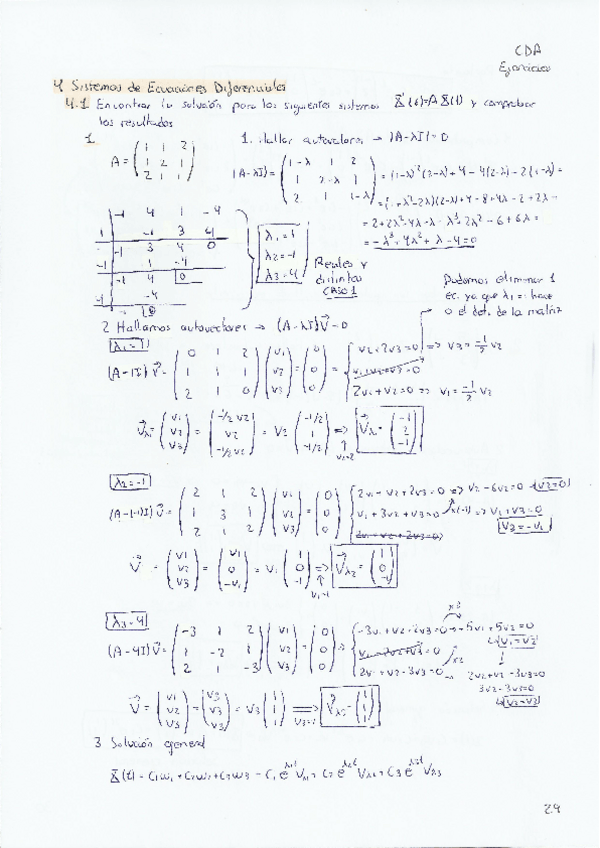 CDA
Ejercicios
4 Sistemas de Ecuaciones Diferenciales
4.1 Encontrar la solución para los siguientes sistemas X'(t)=A X(t) y comprobar
los resultados
1
A = (1 1 2; 1 2 1; 2 1 1)
1. Hallar autovalores → |A-λI| = 0
|A-λI| = (1-λ 1 2; 1 2-λ 1; 2 1 1-λ) = (1-λ)²(2-λ)+4-4(2-λ)-2(1-λ) =
= (1+λ²-2λ)(2-λ)+4-8+4λ-2+2λ =
= -λ³+4λ²+λ-4=0
-1 4 1 -4
1 -1 3 4
-1 3 4 0
-1 1 -4
-1 4 0
4 -4
0
λ1 = 1
λ2 = -1
λ3 = 4
Reales y
distintos
CASO 1
Podemos eliminar 1
ec. ya que λ1 = 1 hace
0 el det. de la matriz
2 Hallamos autovectores → (A-λI)V = 0
λ1 = 1
(A-1I)V = (0 1 2; 1 1 1; 2 1 0)(v1; v2; v3) = (0; 0; 0) =
v2+2v3=0 => v3 = -1/2 v2
v1+v2+v3=0
2v1+v2=0 => v1 = -1/2 v2
(v1; v2; v3) = (-1/2 v2; v2; -1/2 v2) = v2 (-1/2; 1; -1/2) => = (-1; 2; -1)
v2=2
λ2 = -1
(A-(-1)I)V = (2 1 2; 1 3 1; 2 1 2)(v1; v2; v3) = (0; 0; 0)
v1+3v2+v3=0 => v1+v3=0
v2=0
v3=-v1
V = (v1; v2; v3) = (v1; 0; -v1) = v1 (1; 0; -1) => Vλ2 = (1; 0; -1)
v1=1
λ3 = 4
(A-4I)V = (-3 1 2; 1 -2 1; 2 1 -3)(v1; v2; v3) = (0; 0; 0)
-3v1+v2+2v3=0 → -5v1+5v2=0
v1=v2
v1-2v2+v3=0
2v1+v2-3v3=0 → 2v2+v2-3v3=0
3v2-3v3=0
v2=v3
V = (v1; v2; v3) = (v3; v3; v3) = v3 (1; 1; 1) => Vλ3 = (1; 1; 1)
v3=1
3 Solución general
X(t) = C1w1+C2w2+C3w3 = C1 e^λ1t Vλ1 + C2 e^λ2t Vλ2 + C3 e^λ3t Vλ3
29